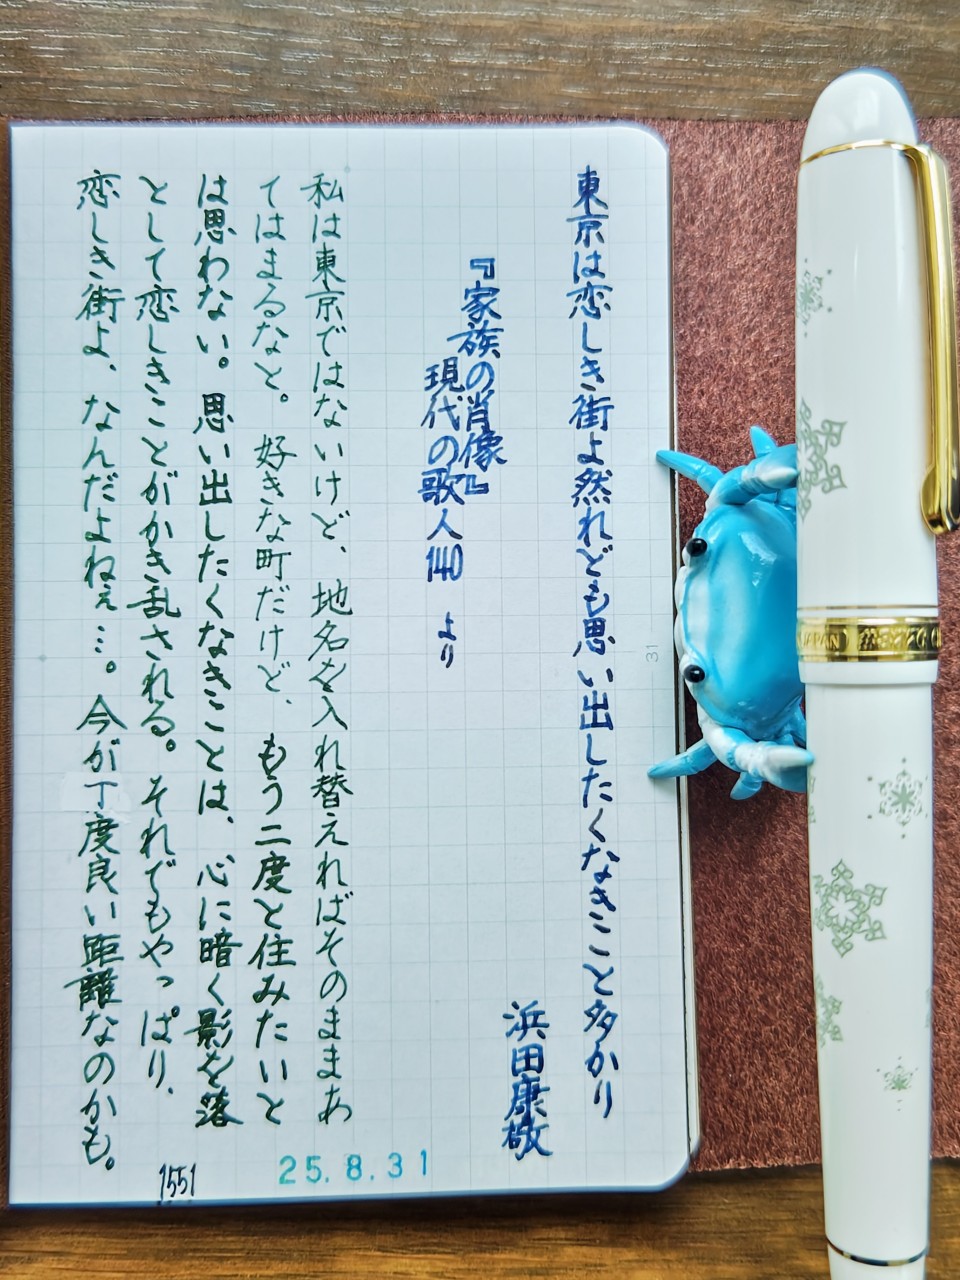 東京は恋しき街よ然れども思い出したくなきこと多かり
浜田康敬
『家族の肖像』
現代の歌人140
より
私は東京ではないけど、地名を入れ替えればそのままあ
てはまるなと。好きな町だけど、もう二度と住みたいと
は思わない。思い出したくなきことは、心に暗く影を落
として恋しきことがかき乱される。それでもやっぱり、
恋しき街よ、なんだよねぇ…。今が丁度良い距離なのかも。
1551
25.8.31
31
JAPAN